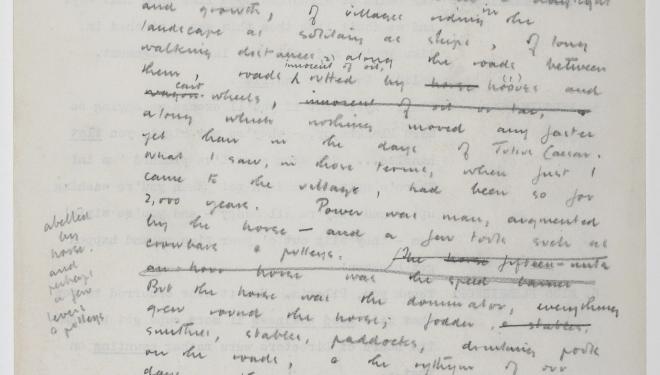 and growth, of villages riding in the
landscape as solitary as ships, of long
walking distances, along the roads between
innocent of oil,
them, roads rutted by horse hooves and
cart
wagon wheels, innocent of oil or tar,
along which nothing moved any faster
yet than in the days of Julius Caesar.
What I saw, in those terms, when first I
came to the village, had been so for
2,000 years. Power was man, augmented
by the horse — and a few tools such as
crowbars & pulleys. The horse fifteen-
horse was the speed barrier
But the horse was the dominator, everything
grew round the horse; fodder, & stables,
smithies, stables, paddocks, drinking pools
on the roads, & the rhythm of our
days
abetted
by
horse.
and
perhaps
a few
levers
& pulleys